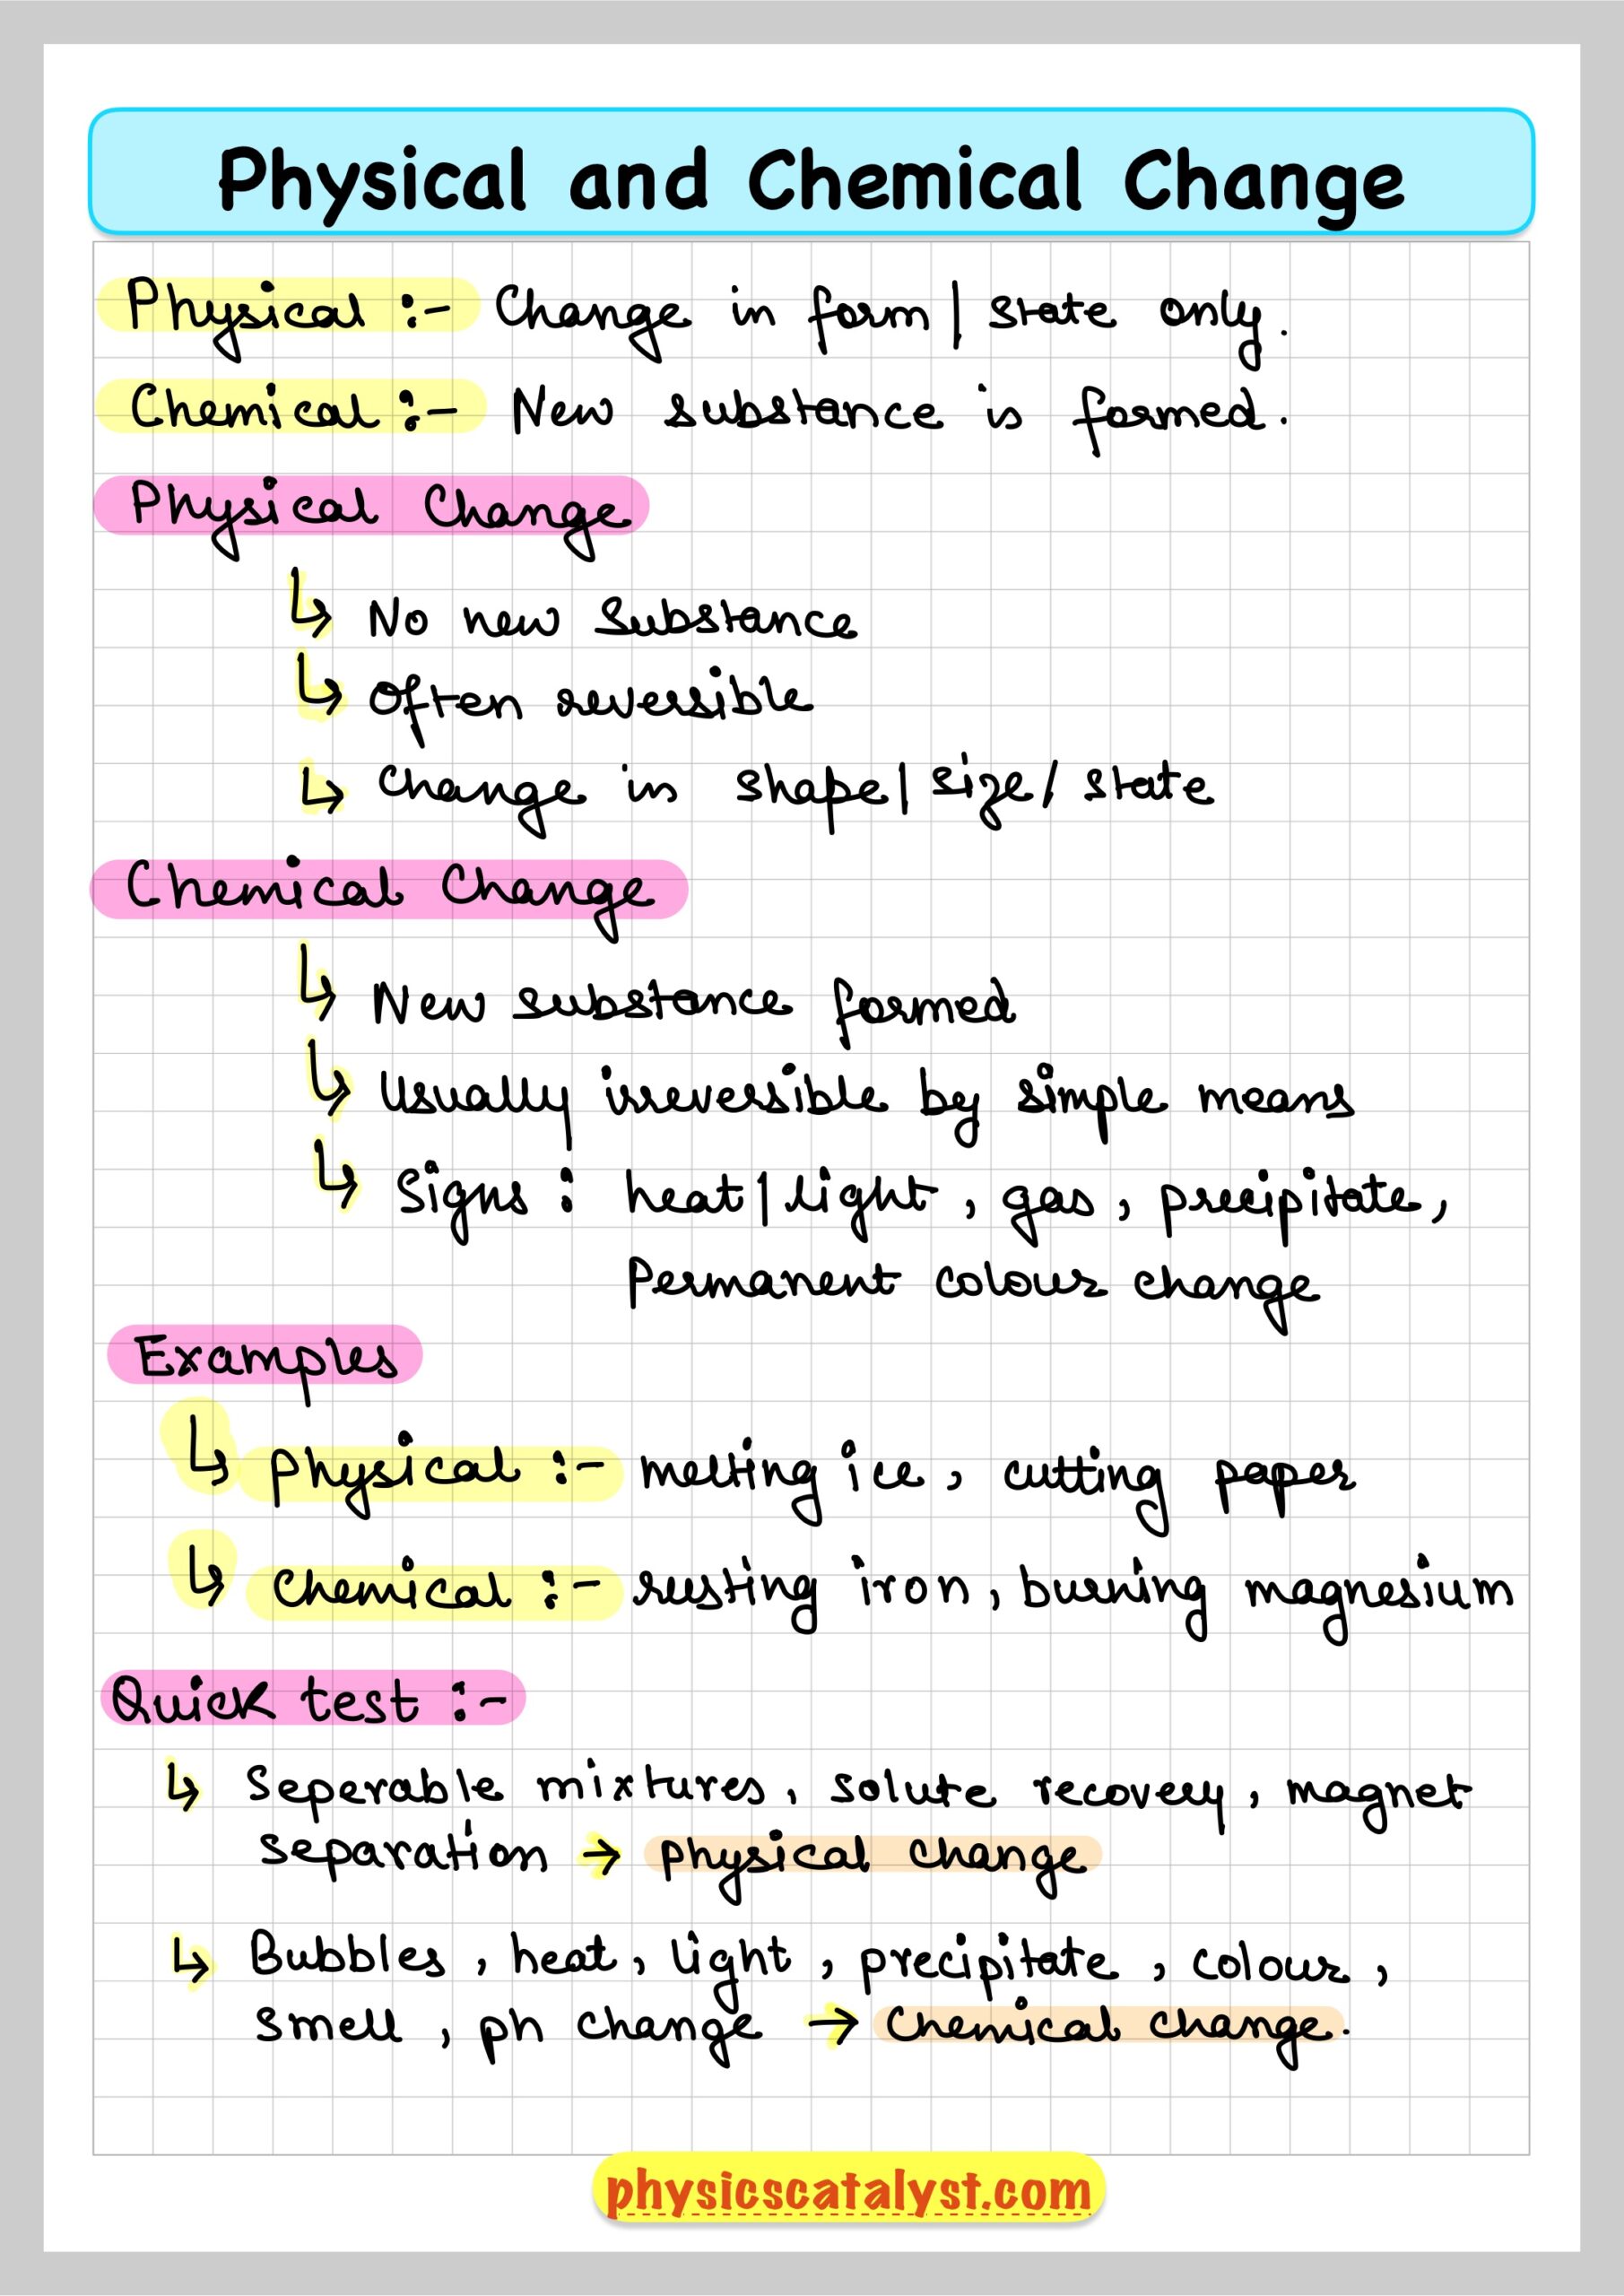 Physical and Chemical Change
Physical :- Change in form | state only.
Chemical :- New substance is formed.
Physical Change
↳ No new Substance
↳ Often reversible
↳ Change in shape | size / state
Chemical Change
↳ New substance formed
↳ Usually irreversible by simple means
↳ Signs : heat | light , gas , precipitate ,
Permanent colour change
Examples
↳ physical :- melting ice , cutting paper
↳ chemical :- rusting iron , burning magnesium
Quick test :-
↳ Seperable mixtures , solute recovery , magnet
separation → physical change
↳ Bubbles , heat , light , precipitate , colour ,
smell , ph change → Chemical change.
physicscatalyst.com